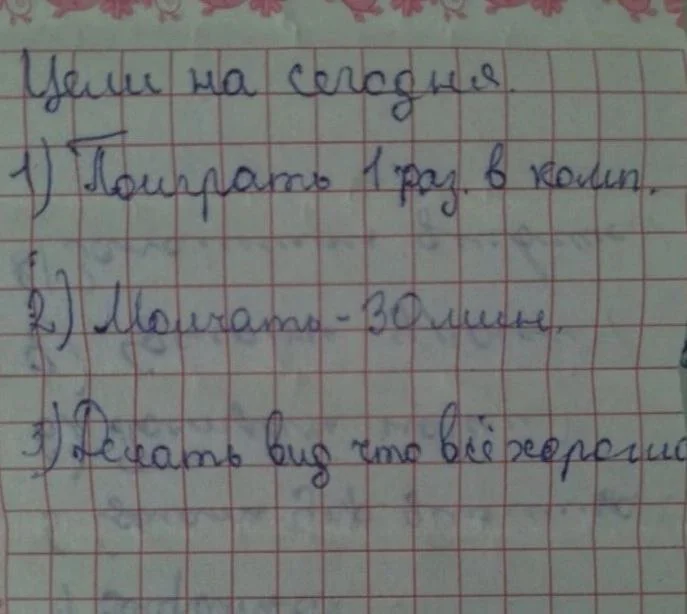 Цели на сегодня.
1) Поиграть 1 раз. в комп.
2) Молчать - 30 мин.
3) Делать вид что всё хорошо